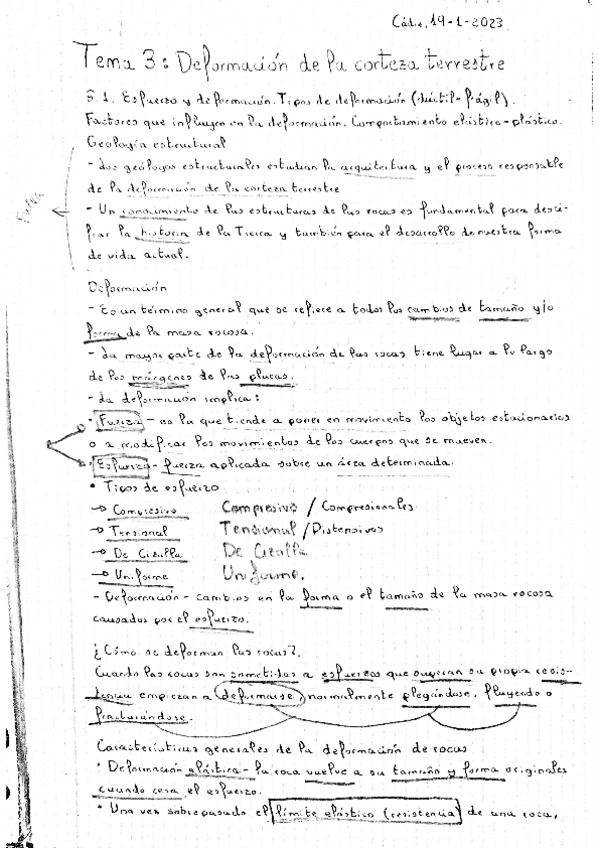 Cádiz, 19-1-2023
Tema 3: Deformación de la corteza terrestre
5.1. Esfuerzo y deformación. Tipos de deformación (dúctil-frágil).
Factores que influyen en la deformación. Comportamiento elástico-plástico.
Geología estructural
- Los geólogos estructurales estudian la arquitectura y el proceso responsable
de la deformación de la corteza terrestre
- Un conocimiento de las estructuras de las rocas es fundamental para desci-
frar la historia de la Tierra y también para el desarrollo de nuestra forma
de vida actual.
Deformación
- Es un término general que se refiere a todos los cambios de tamaño y/o
forma de la masa rocosa.
- La mayor parte de la deformación de las rocas tiene lugar a lo largo
de los márgenes de las placas.
- La deformación implica:
· Fuerza - es la que tiende a poner en movimiento los objetos estacionarios
o a modificar los movimientos de los cuerpos que se mueven.
· Esfuerzo - fuerza aplicada sobre un área determinada.
• Tipos de esfuerzo
→ Compresivo Compresivo / Compresionales
→ Tensional Tensional / Distensivos
→ De Cizalla De Cizalla
→ Uniforme Uniforme.
- Deformación - cambios en la forma o el tamaño de la masa rocosa
causados por el esfuerzo.
¿Cómo se deforman las rocas?.
Cuando las rocas son sometidas a esfuerzos que superan su propia resis-
tencia empiezan a deformarse, normalmente plegándose, fluyendo o
fracturándose.
Características generales de la deformación de rocas
• Deformación elástica - la roca vuelve a su tamaño y forma originales
cuando cesa el esfuerzo.
• Una vez sobrepasado el límite elástico (resistencia) de una roca,